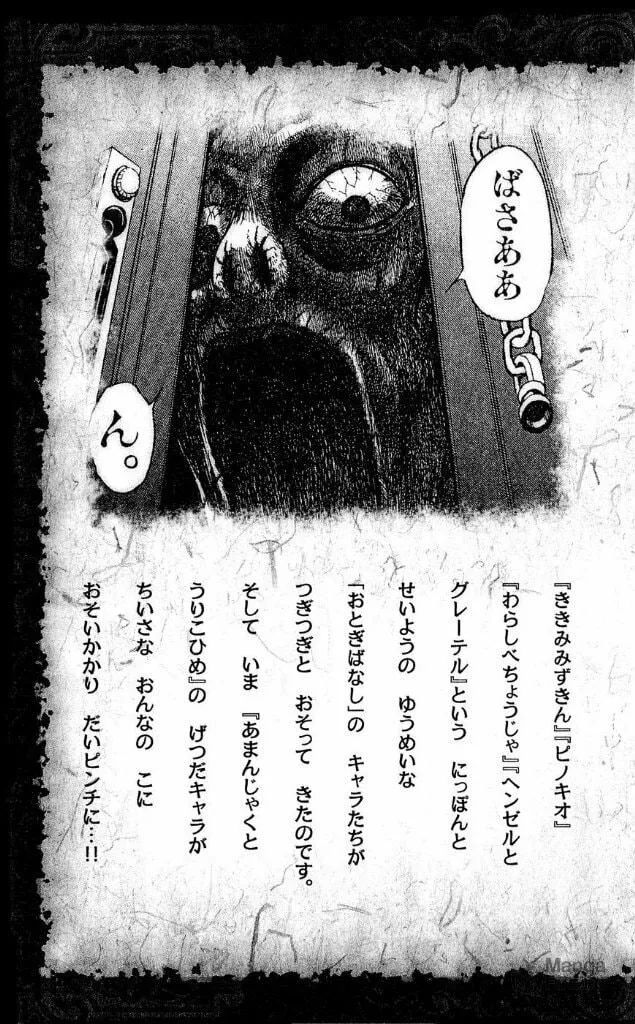 ばさああ
ん。
『ききみみずきん』『ピノキオ』
『わらしべちょうじゃ』『ヘンゼルと
グレーテル』という にっぽんと
せいようの ゆうめいな
「おとぎばなし」の キャラたちが
つぎつぎと おそって きたのです。
そして いま 『あまんじゃくと
うりこひめ』の げつだキャラが
ちいさな おんなの こに
おそいかかり だいピンチに…!!
Manga